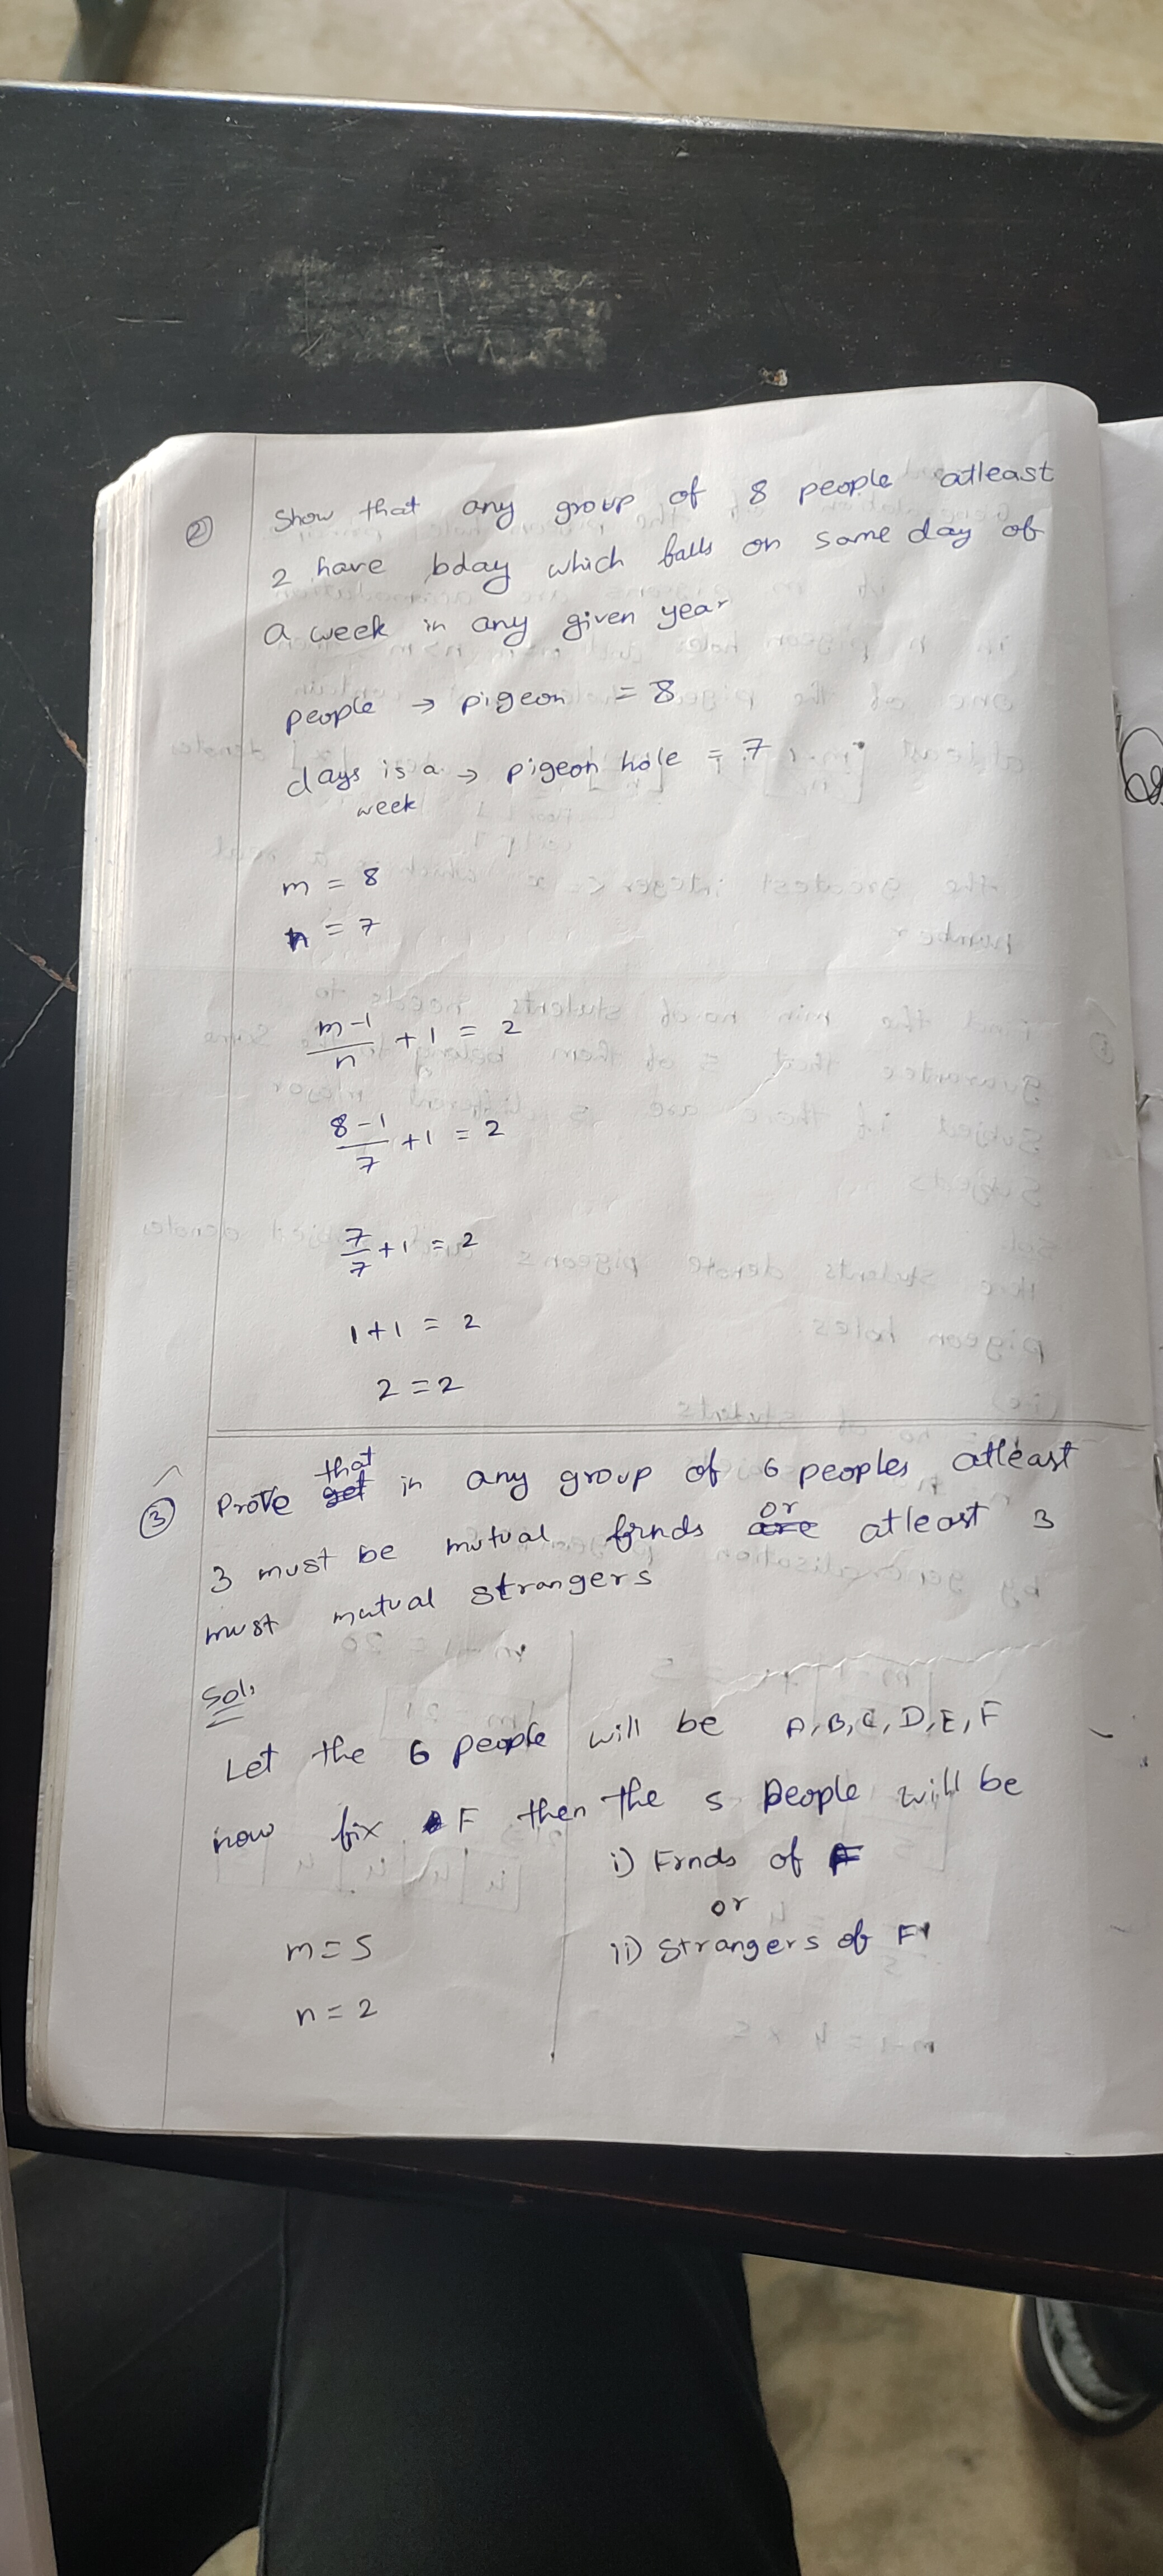 ② Show that any group of 8 people atleast
2 have bday which falls on same day of
a week in any given year
people → pigeon = 8
days is a → pigeon hole = 7
week
m = 8
n = 7
m-1/n + 1 = 2
8-1/7 + 1 = 2
7/7 + 1 = 2
1+1 = 2
2 = 2
③ Prove that in any group of 6 peoples atleast
3 must be mutual frnds or atleast 3
must mutual strangers
Sol:
Let the 6 people will be A, B, C, D, E, F
now fix F then the 5 people will be
i) Frnds of F
or
ii) Strangers of F
m = 5
n = 2